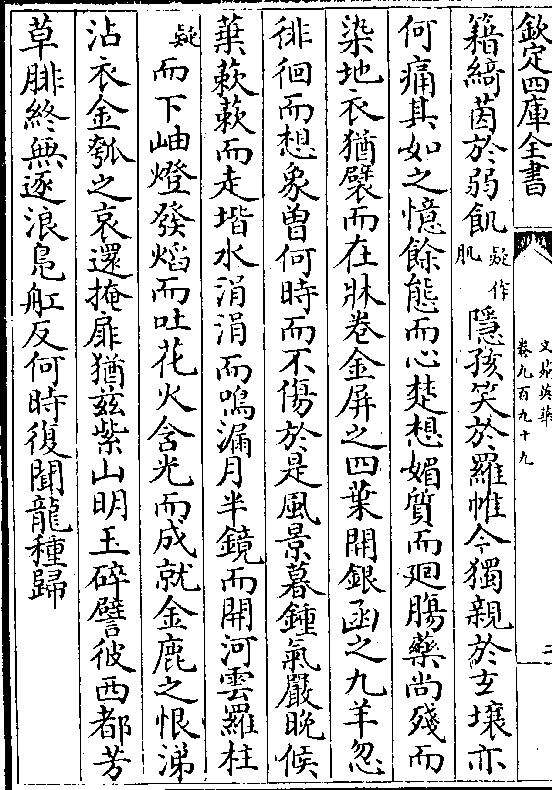 欽定四庫全書
文苑英華
卷九百九十九
籍綺茵於弱飢疑作肌隱孩笑於羅帷今獨親於玄壤亦
何痛其如之憶餘態而心楚想媚質而廻腸藥尚殘而
染地衣猶襞而在牀卷金屏之四葉開銀函之九羊忽
徘徊而想象曽何時而不傷於是風景暮鍾氣嚴晚候
葉蔌蔌而走堦水涓涓而鳴漏月半鏡而開河雲羅柱
疑而下岫燈發焰而吐花火含光而成就金鹿之恨涕
沾衣金瓠之哀還掩扉猶兹紫山明玉碎譬彼西都芳
草腓終無逐浪鳬舡反何時復聞龍種歸